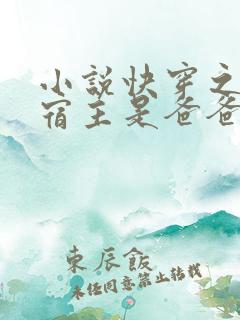 小说快穿之
宿主是爸爸
東辰飯
未经同意禁止转载